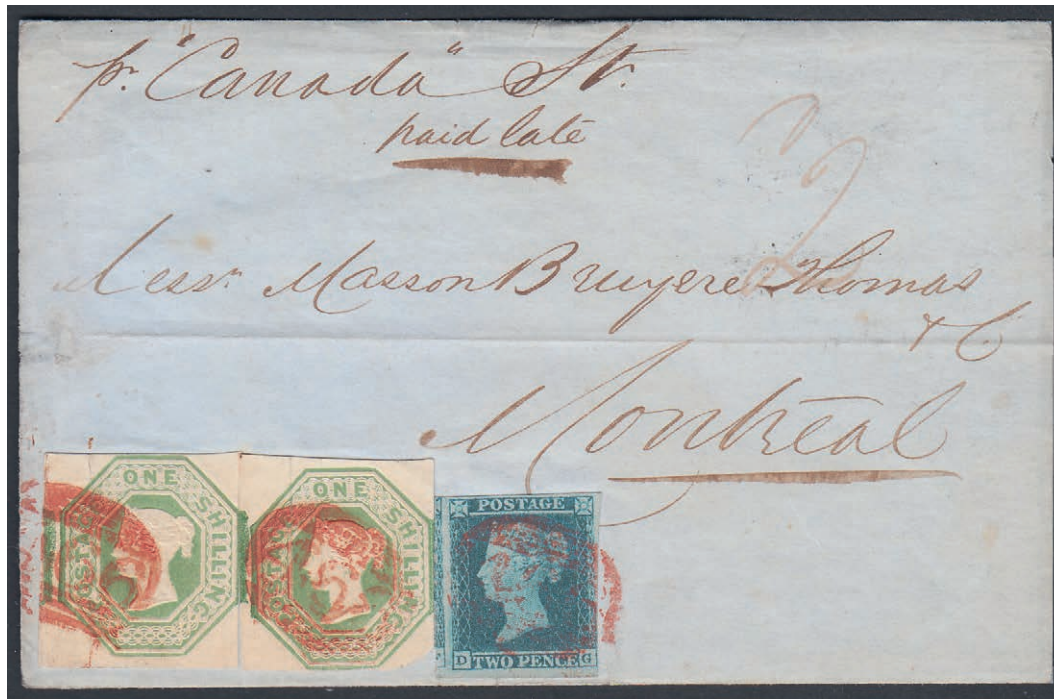 pr. "Canada" Str.
paid late
2
Messrs Masson Bruyere Thomas
& Co
Montreal
ONE SHILLING POSTAGE
ONE SHILLING POSTAGE
POSTAGE
D TWO PENCE G